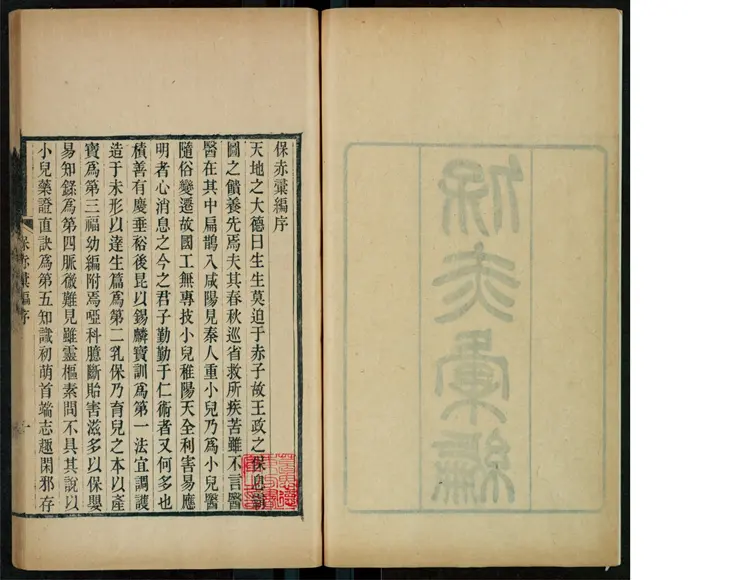 保赤彙編
保赤彙編序
天地之大德曰生生莫迫于赤子故王政之保息
圖之饋養先焉夫其春秋巡省救所疾苦雖不言醫
醫在其中扁鵲入咸陽見秦人重小兒乃爲小兒醫
隨俗變遷故國工無專技小兒稚陽天全利害易應
明者心消息之今之君子勤勤于仁術者又何多也
積善有慶垂裕後昆以錫麟寶訓爲第一法宜調護
造于未形以達生篇爲第二乳保乃育兒之本以產
寶爲第三福幼編附焉啞科臆斷胎害滋多以保嬰
易知錄爲第四脈微難見雖靈樞素問不具其說以
小兒藥證直訣爲第五知識初萌首端志趣閑邪存
保赤彙編序
一